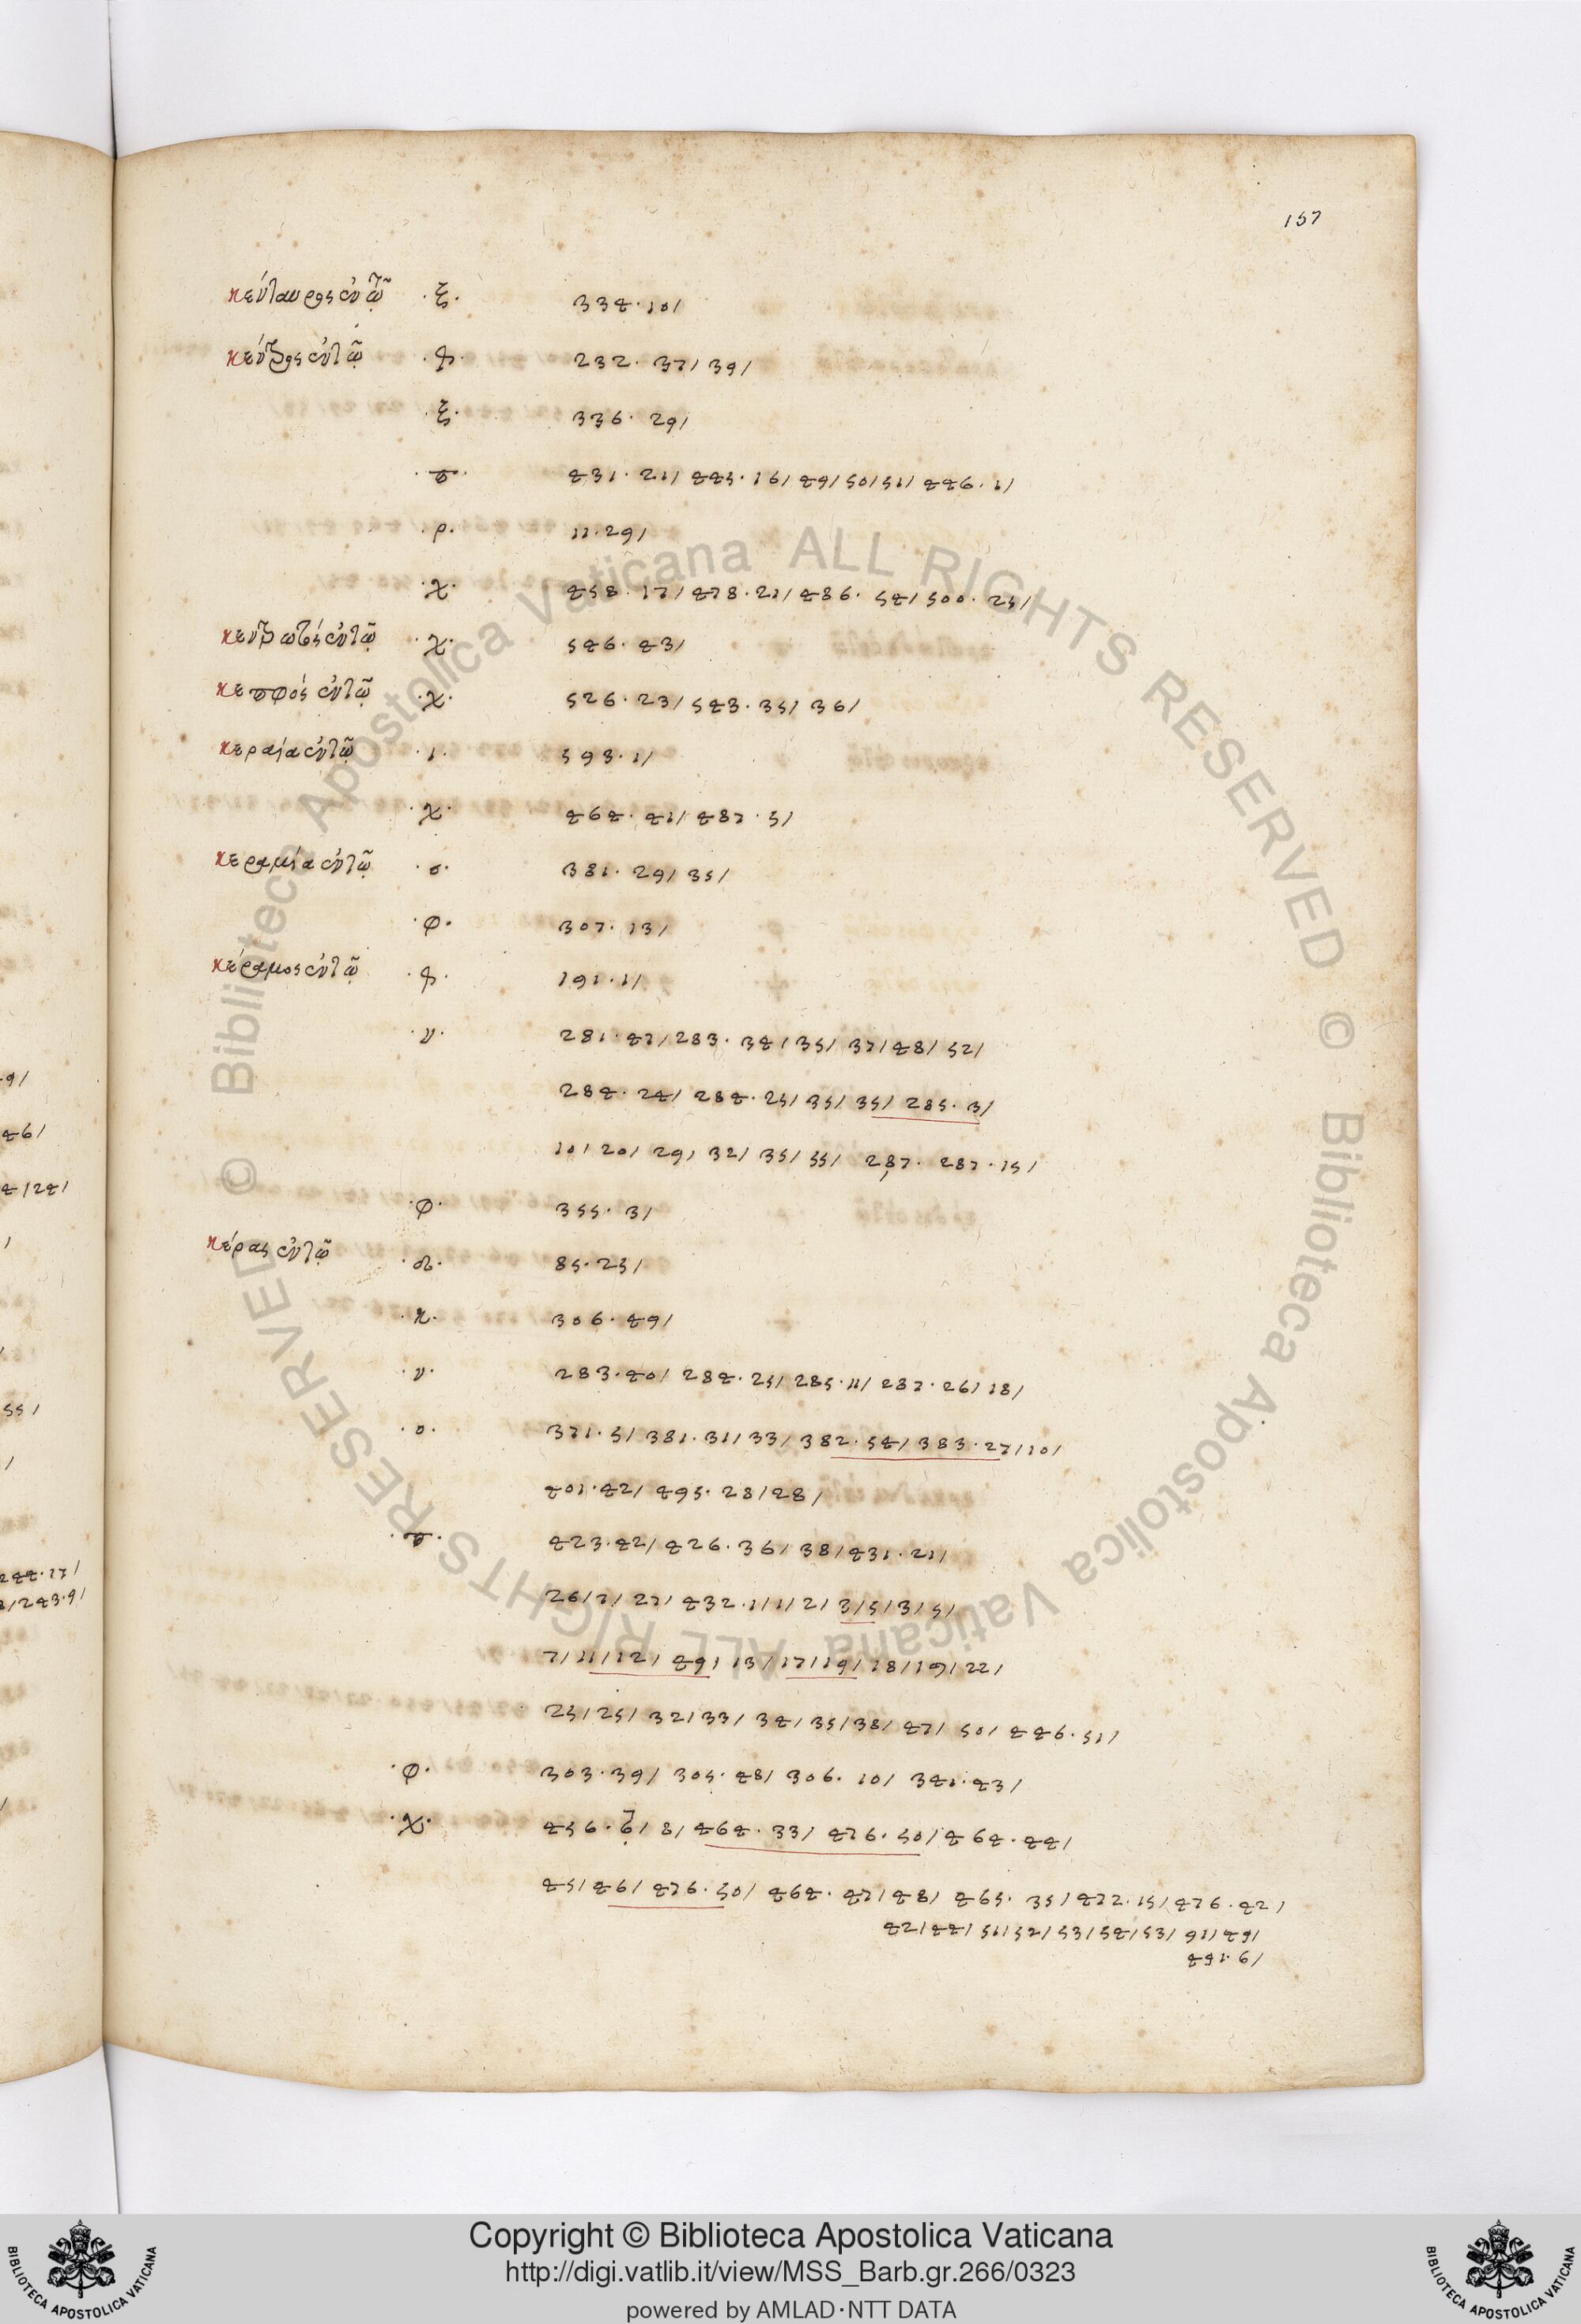 157
κένταυρος ἐν τῷ ·ξ· 334·10/
κέντρος ἐν τῷ ·φ· 232· 37/ 39/
·ξ· 336· 29/
·π· 431· 21/ 445·16/ 49/ 50/ 51/ 446·1/
·ρ· 11·29/
·χ· 458·17/ 478·21/ 486· 54/ 500·25/
κεντρωτός ἐν τῷ ·χ· 546·43/
κεπφός ἐν τῷ ·χ· 526·23/ 543·35/ 36/
κεραία ἐν τῷ ·ι· 593·1/
·χ· 464·41/ 487·5/
κεραμία ἐν τῷ ·ο· 381·29/ 35/
·φ· 307·13/
κέραμος ἐν τῷ 191·1/
·ν· 281·47/ 283·34/ 35/ 37/ 48/ 52/
284·24/ 284·25/ 35/ 35/ 285·3/
10/ 20/ 29/ 32/ 35/ 55/ 287· 287·15/
·φ· 355·3/
κέρας ἐν τῷ 85·25/
·κ· 306·49/
·ν· 283·40/ 284·25/ 285·11/ 287·26/ 18/
·ο· 371·5/ 381·31/ 33/ 382·54/ 383·27/ 10/
401·42/ 495·28/ 28/
·π· 423·42/ 426·36/ 38/ 431·21/
26/ 7/ 27/ 432·1/ 1/ 2/ 3/ 5/ 3/ 5/
7/ 11/ 12/ 49/ 13/ 17/ 19/ 18/ 19/ 22/
25/ 25/ 32/ 33/ 34/ 35/ 38/ 47/ 50/ 446·51/
·φ· 303·39/ 305·48/ 306·10/ 341·43/
·χ· 456·6/ 8/ 464·33/ 476·50/ 464·44/
45/ 46/ 476·50/ 464·47/ 48/ 465·35/ 472·15/ 476·42/
42/ 44/ 51/ 52/ 53/ 54/ 53/ 91/ 49/
491·6/
© Biblioteca Apostolica Vaticana ALL RIGHTS RESERVED © Biblioteca Apostolica Vaticana ALL RIGHTS RESERVED
Copyright © Biblioteca Apostolica Vaticana
http://digi.vatlib.it/view/MSS_Barb.gr.266/0323
powered by AMLAD·NTT DATA
BIBLIOTECA APOSTOLICA VATICANA
BIBLIOTECA APOSTOLICA VATICANA